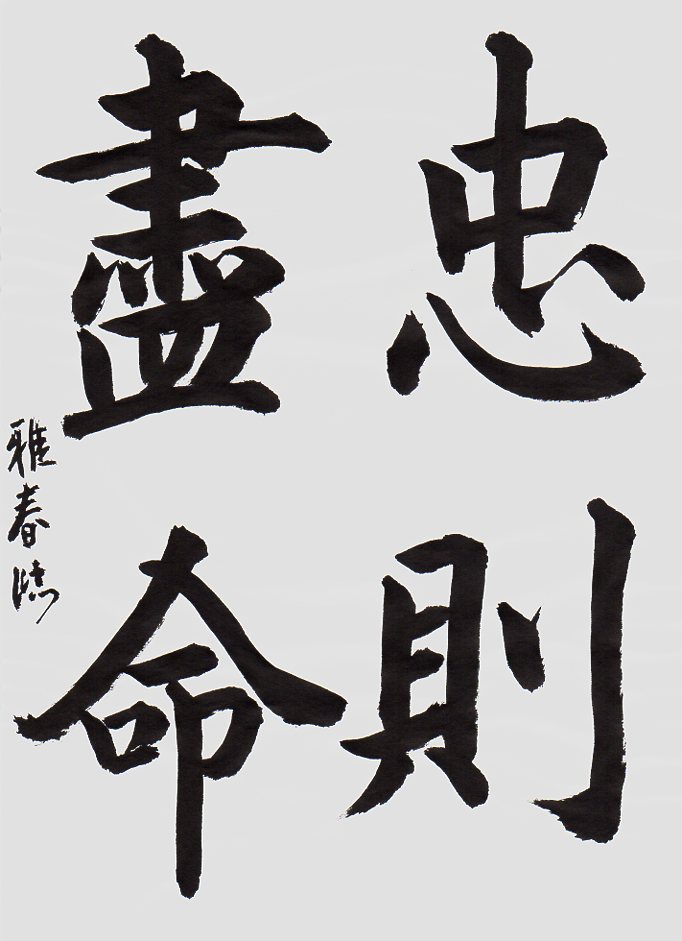 忠則
盡命
雅春臨